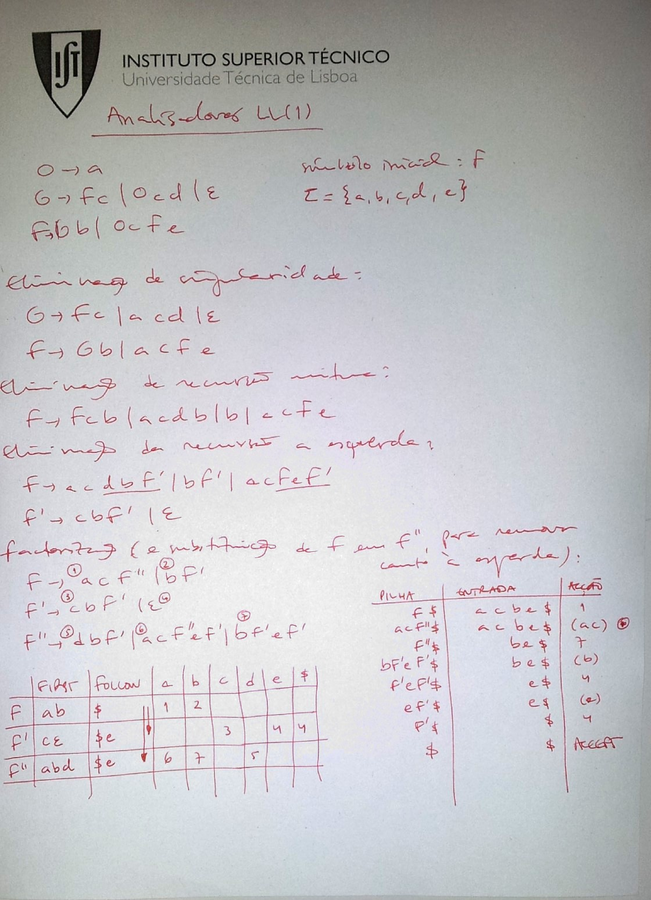 IST
INSTITUTO SUPERIOR TÉCNICO
Universidade Técnica de Lisboa
Analisadores LL(1)
O → a símbolo inicial: F
G → Fc | Ocd | ε τ = {a, b, c, d, e}
F → Gb | OcFe
Eliminação de singularidade:
G → Fc | acd | ε
F → Gb | acFe
Eliminação de recursão mútua:
F → Fcb | acdb | b | acFe
Eliminação da recursão à esquerda:
F → acdbF' | bF' | acFeF'
F' → cbF' | ε
Factorização (e substituição de F em F'' para remover
canto à esquerda):
F → ① acF'' | ② bF'
F' → ③ cbF' | ε ④
F'' → ⑤ dbF' | ⑥ acF''eF' | ⑦ bF'eF'
FIRST FOLLOW a b c d e $
F ab $ 1 2
F' cε $e 3 4 4
F'' abd $e 6 7 5
PILHA ENTRADA ACÇÃO
F$ acbe$ 1
acF''$ acbe$ (ac)
F''$ be$ 7
bF'eF'$ be$ (b)
F'eF'$ e$ 4
eF'$ e$ (e)
F'$ $ 4
$ $ ACCEPT